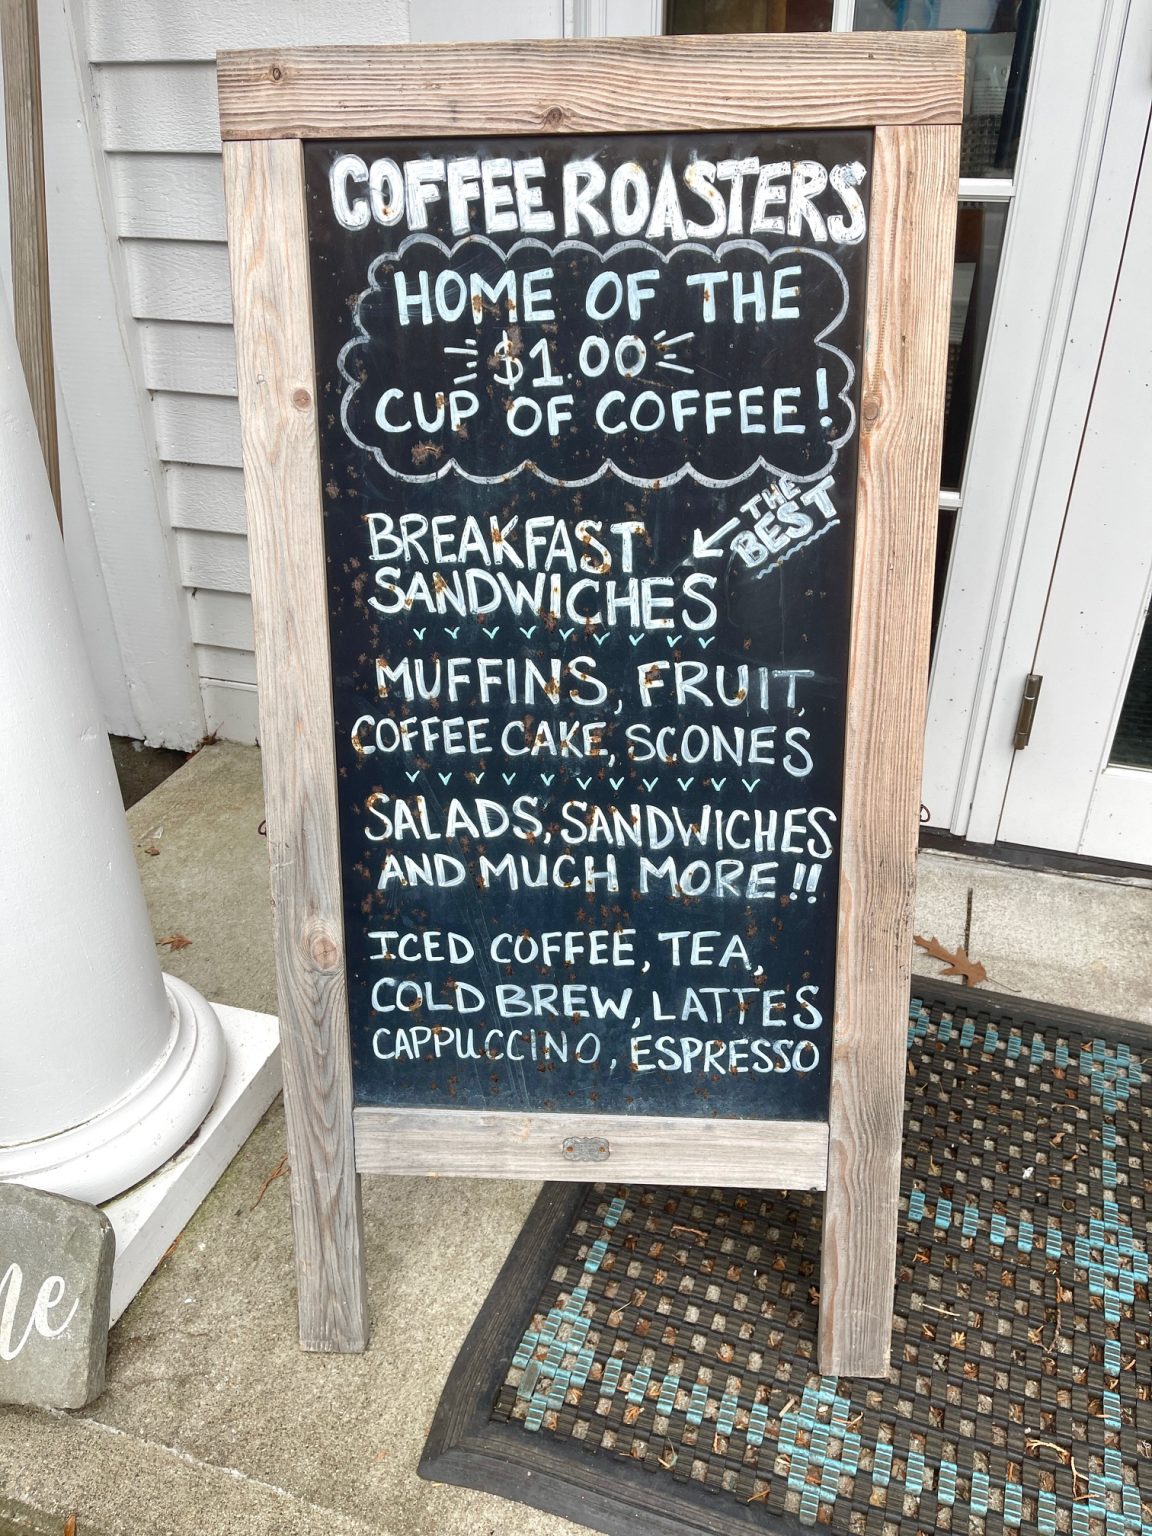 COFFEE ROASTERS
HOME OF THE
$1.00
CUP OF COFFEE!
THE
BEST
BREAKFAST
SANDWICHES
MUFFINS, FRUIT,
COFFEE CAKE, SCONES
SALADS, SANDWICHES
AND MUCH MORE!!
ICED COFFEE, TEA,
COLD BREW, LATTES
CAPPUCCINO, ESPRESSO